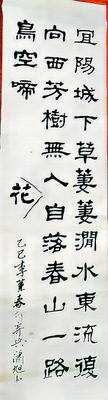 宜陽城下草萋萋澗水東流復
向西芳樹無人自落春山一路
鳥空啼
花
乙巳